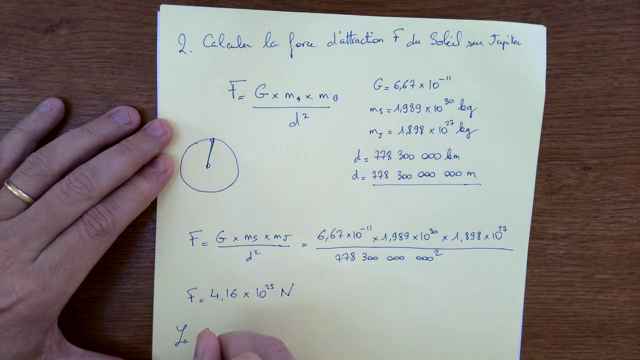 2. Calculer la force d'attraction F du Soleil sur Jupiter
F = G × mA × mB
d²
G = 6,67 × 10⁻¹¹
mS = 1,989 × 10³⁰ kg
mJ = 1,898 × 10²⁷ kg
d = 778 300 000 km
d = 778 300 000 000 m
F = G × mS × mJ / d² = 6,67 × 10⁻¹¹ × 1,989 × 10³⁰ × 1,898 × 10²⁷ / 778 300 000 000²
F = 4,16 × 10²³ N